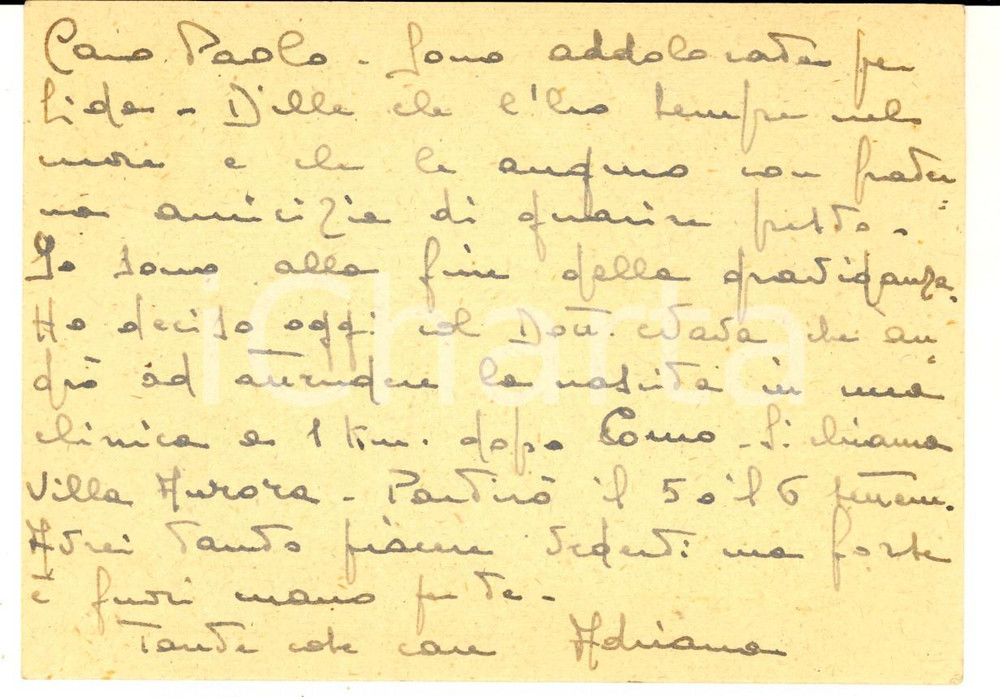 Caro Paolo - Sono addolorata per
Lida - Dille che l'ho sempre nel
cuore e che le auguro con frater=
na amicizia di guarire presto -
Io sono alla fine della gravidanza.
Ho deciso oggi col Dott. che an=
drò ad attendere la nascita in una
clinica a 1 Km. dopo Como - Si chiama
Villa Aurora - Partirò il 5 o il 6 settem.
Avrei tanto piacere vederti ma forse
è fuori mano per te -
Tante cose care Adriana
iCharta